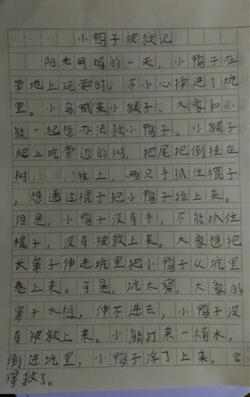 小鸭子被救记
阳光明媚的一天，小鸭子在
草地上玩耍时，不小心掉进了坑
里。小鸟喊来小猴子、大象和小
熊一起想办法救小鸭子。小猴子
爬上坑旁边的树，把尾把倒挂在
树上，两只手抓住棍子
，想通过棍子把小鸭子拉上来。
但是，小鸭子没有手，不能抓住
棍子，没有被救上来。大象想把
长鼻子伸进坑里把小鸭子从坑里
卷上来。可是，坑太窄，大象的
鼻子太短，伸不进去，小鸭子没
有被救上来。小熊打来一桶水，
倒进坑里，小鸭子浮了上来，它
得救了。